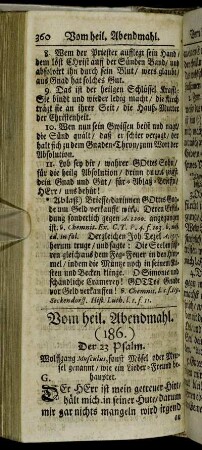 360 Vom heil. Abendmahl.
8. Wem der Priester aufflegt sein Hand/
dem löst Christ auff der Sünden Band/ und
absolvirt ihn durch sein Blut/ wers glaubt/
aus Gnad hat solches Gut.
9. Das ist der heilgen Schlüssel Krafft:
Sie bindt und wieder ledig macht/ die Kirch
trägt sie an ihrer Seit/ die Hauß-Mutter
der Christenheit.
10. Wem nun sein Gwissen beist und nagt/
die Sünd quält/ daß er schier verzagt/ der
halt sich zu dem Gnaden-Thron/ zum Wort der
Absolution.
11. Lob sey dir/ wahrer GOttes Sohn/
für die heilig Absolution/
dein Gnad und Gut/ für
HErr/ uns behüt!
* Ablaß/ Briefe
de um Geld verkauffe
dung sonderlich gegen angegangen
ist.
Dergleichen Joh Tezel
herum truge/ und sagte: Die Seelen
ren gleich aus dem Feg-Feuer in den
mel/ indem die Müntze noch in seinem
sten und Becken klinge. O Simonie und
schändliche Crämerey! GOttes Gnade
um Geld verkauffen!
Seckendorff. Hist. Luth. L. 1. f. 11.
Vom heil. Abendmahl.
(186.)
Der 23 Psalm.
Wolffgang Musculus, sonst Mösel oder
sel genannt/ wie ein Lieder-Freund be-
G. hauptet.
DEr HErr ist mein getreuer Hirt/
hält mich in seiner Hute/ darum
mir gar nichts mangeln wird irgend